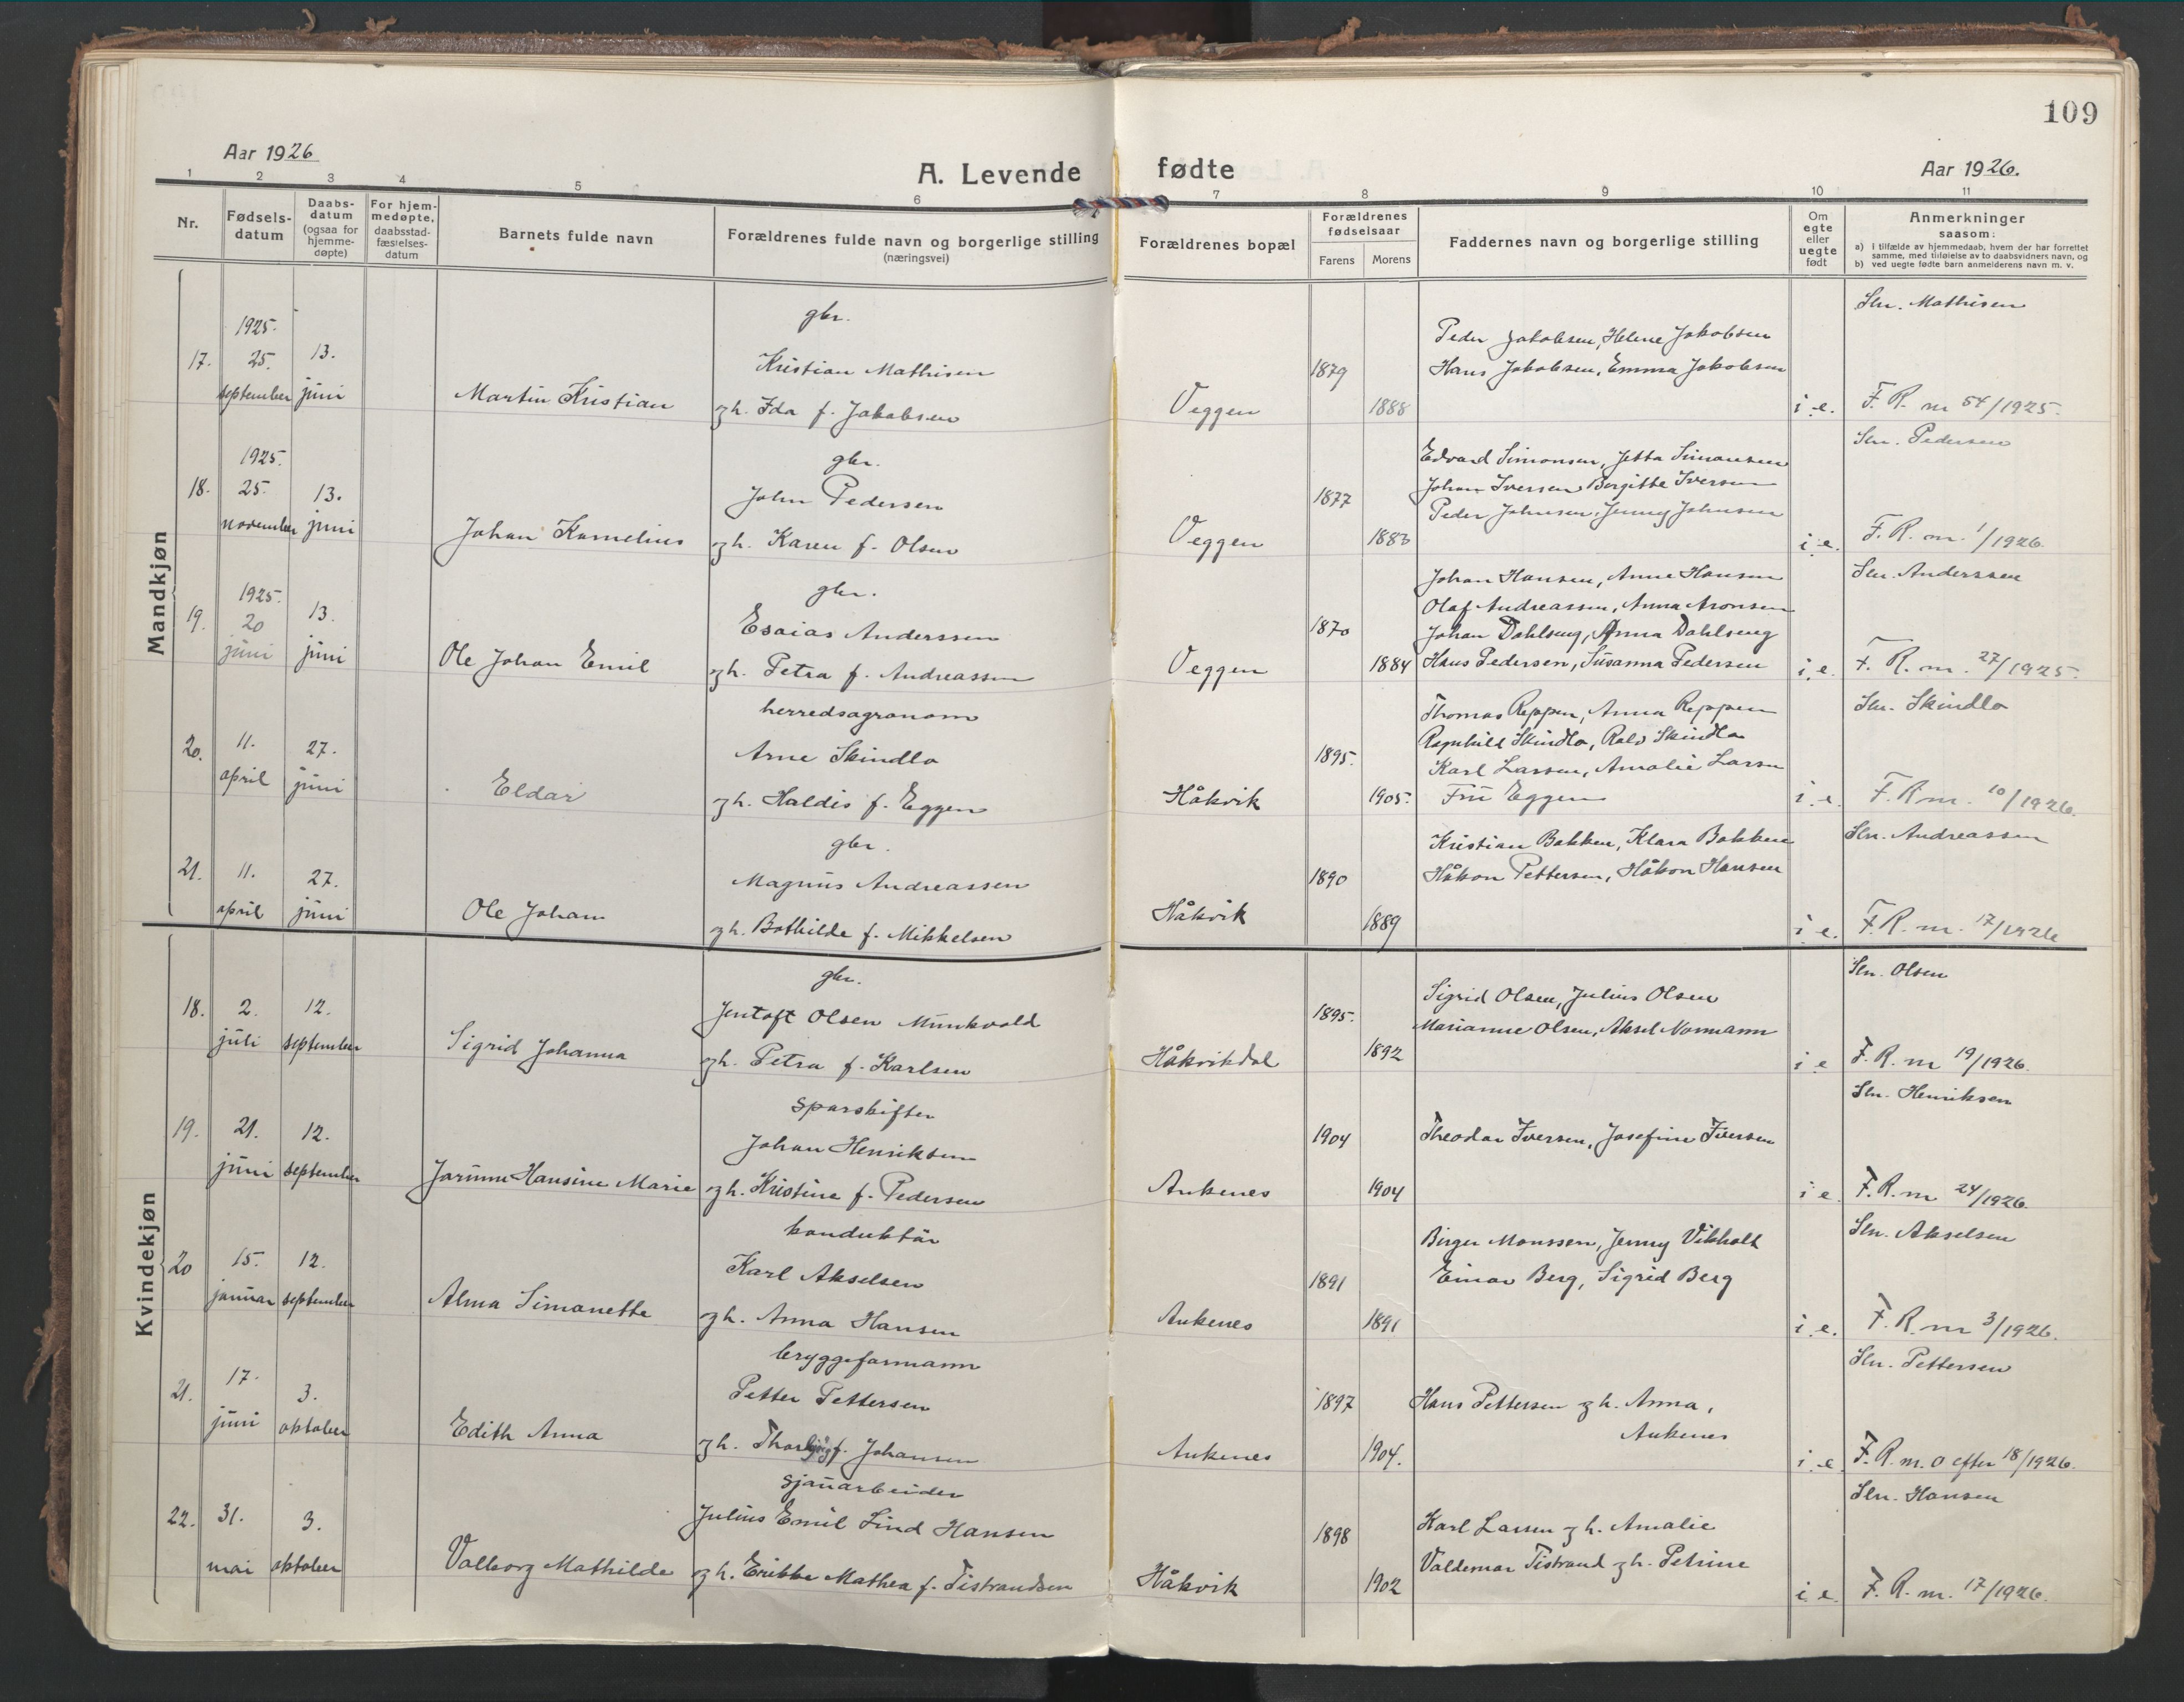 109
Aar 1926
A. Levende fødte
Aar 1926.
1 2 3 4 5 6 7 8 9 10 11
Nr.
Fødsels-
datum
Daabs-
datum
(ogsaa for
hjemme-
døpte)
For hjem-
medøpte,
daabsstad-
fæstelses-
datum
Barnets fulde navn
Forældrenes fulde navn og borgerlige stilling
(næringsvei)
Forældrenes bopæl
Forældrenes
fødselsaar
Farens Morens
Faddernes navn og borgerlige stilling
Om
egte
eller
uegte
født
Anmerkninger
saasom:
a) i tilfælde av hjemmedaab, hvem der har forrettet
samme, med tilføielse av to daabsvidners navn, og
b) ved uegte fødte barn anmelderens navn m. v.
Mandkjøn
17.
1925.
25.
september
13.
juni
Martin Kristian
gbr.
Kristian Mathisen
og h. Ida f. Jakobsen
Veggen
1879
1888
Peder Jakobsen, Helene Jakobsen
Hans Jakobsen, Emma Jakobsen
i. e.
Sln. Mathisen
F. R. nr 54/1925.
18.
1925.
25.
november
13.
juni
Johan Kornelius
gbr.
John Pedersen
og h. Karen f. Olsen
Veggen
1877
1883
Edvard Simonsen, Jetta Simonsen
Johan Iversen Borgitte Iversen
Peder Johnsen, Jenny Johnsen
i. e.
Sln. Pedersen
F. R. nr. 1/1926.
19.
1925.
20
juni
13.
juni
Ole Johan Emil
gbr.
Esaias Anderssen
og h. Petra f. Andreassen
Veggen
1870
1884
Johan Hansen, Anne Hansen
Olaf Andreassen, Anna Aronsen
Johan Dahlseng, Anna Dahlseng
Hans Pedersen, Susanna Pedersen
i. e.
Sln. Anderssen
F. R. nr. 27/1925.
20.
11.
april
27.
juni
Eldar
herredsagronom
Arne Skindlo
og h. Haldis f. Eggen
Håkvik
1895.
1905.
Thomas Reppen, Anna Reppen
Ragnhild Skindlo, Rolv Skindlo
Karl Larsen, Amalie Larsen
Fru Eggen
i. e.
Sln. Skindlo
F. R. nr. 10/1926.
21.
11.
april
27.
juni
Ole Johan
gbr.
Magnus Andreassen
og h. Bothilde f. Mikkelsen
Håkvik
1890
1889
Kristian Bakken, Klara Bakken
Håkon Pettersen, Håkon Hansen
i. e.
Sln. Andreassen
F. R. nr. 17/1926
Kvindekjøn
18.
2.
juli
12.
september
Sigrid Johanna
gbr.
Jentoft Olsen Munkvold
og h. Petra f. Karlsen
Håkvikdal
1895.
1892
Sigrid Olsen, Julius Olsen
Marianne Olsen, Aksel Normann
i. e
Sln. Olsen
F. R. nr 19/1926.
19.
21.
juni
12.
september
Jorunn Hansine Marie
sporskifter
Johan Henriksen
og h. Kristine f. Pedersen
Ankenes
1904
1904
Theodor Iversen, Josefine Iversen
i e.
Sln. Henriksen
F. R. nr 24/1926.
20
15.
januar
12.
september
Alma Simonette
konduktør
Karl Akselsen
og h. Anna Hansen
Ankenes
1891
1891
Birger Monssen, Jenny Vikholt
Einar Berg, Sigrid Berg
i. e.
Sln. Akselsen
F. R. nr 3/1926.
21.
17.
juni
3.
oktober
Edith Anna
bryggeformann
Petter Pettersen
og h. Thorbjørg f. Johansen
Ankenes
1897
1904.
Hans Pettersen og h. Anna,
Ankenes
i. e.
Sln. Pettersen
F. R. nr. 0 efter 18/1926.
22.
31.
mai
3.
oktober
Valborg Mathilde
sjauarbeider
Julius Emil Lind Hansen
og h. Erikke Mathea f. Tistrandsen
Håkvik
1898
1902
Karl Larsen og h. Amalie
Valdemar Tistrand og h. Petrine
i. e.
Sln. Hansen
F. R. nr. 17/1926.